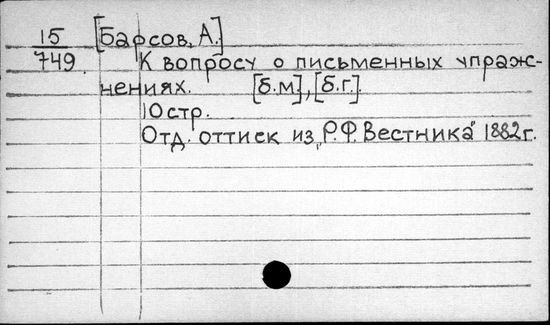 15 [Барсов, А.]
749. К вопросу о письменных упраж-
нениях. [б.м], [б.г.].
10 стр.
Отд. оттиск из „Р.Ф.Вестника" 1882 г.